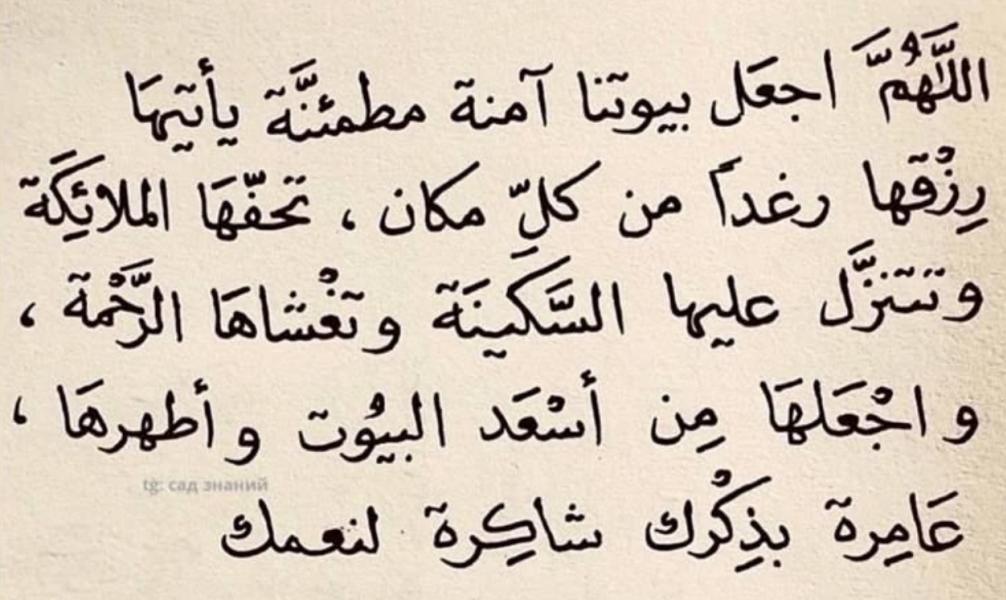 اللَّهُمَّ اجعَل بيوتنا آمنة مطمئنَّة يأتيهَا
رِزْقها رغداً من كلّ مكان ، تحفّهَا الملائِكَة
وتتنزَّل عليها السَّكَينَة وتغْشاهَا الرَّحْمة ،
واجْعَلهَا مِن أسْعَد البيُوت وأطهرهَا ،
tg: сад знаний
عَامِرة بذِكْرك شاكِرة لنعمك